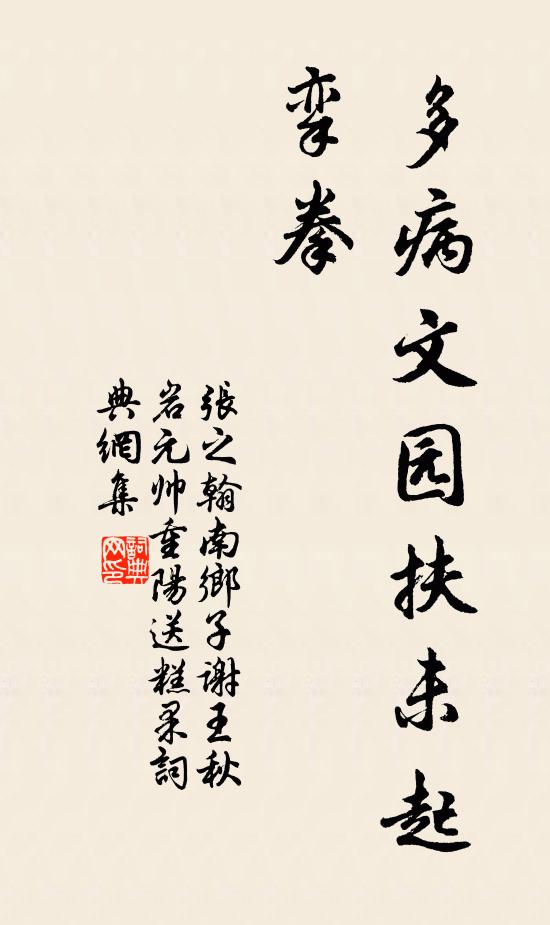 多病文园扶未起
挛拳
張之翰南鄉子謝王秋
岩元帅重陽送糕果詞
典網集
詞典
网印